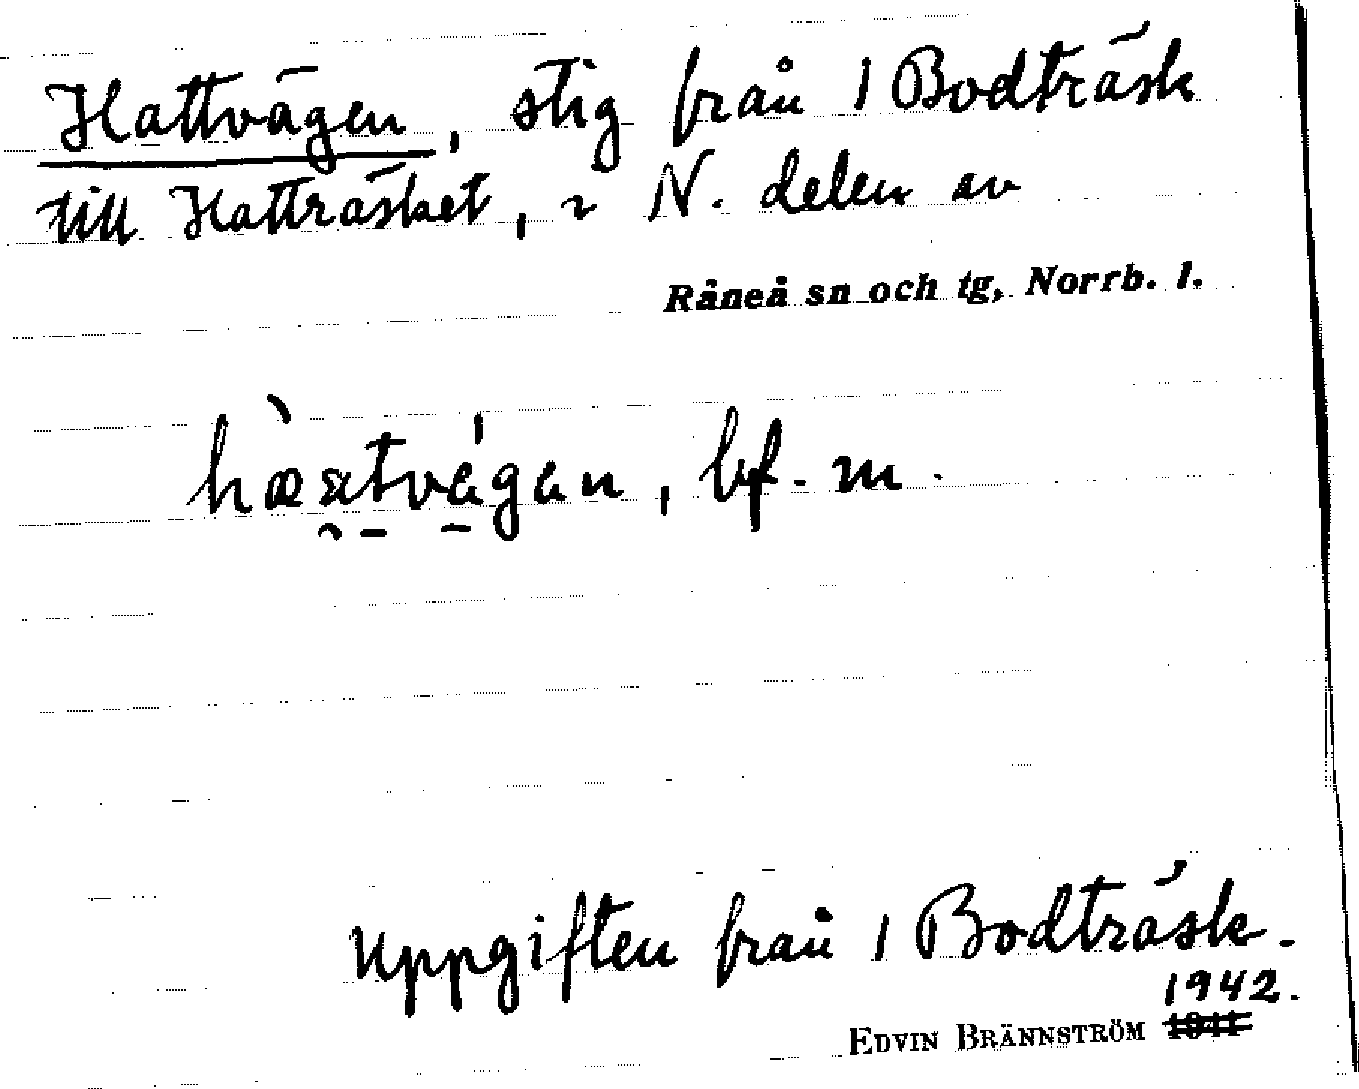 Hattvägen, stig från 1 Bodträsk
till Hatträsket, i N. delen av
Råneå sn och tg, Norrb. l.
bf. m.
Uppgiften från 1 Bodträsk.
1942.
EDVIN BRÄNNSTRÖM 1941